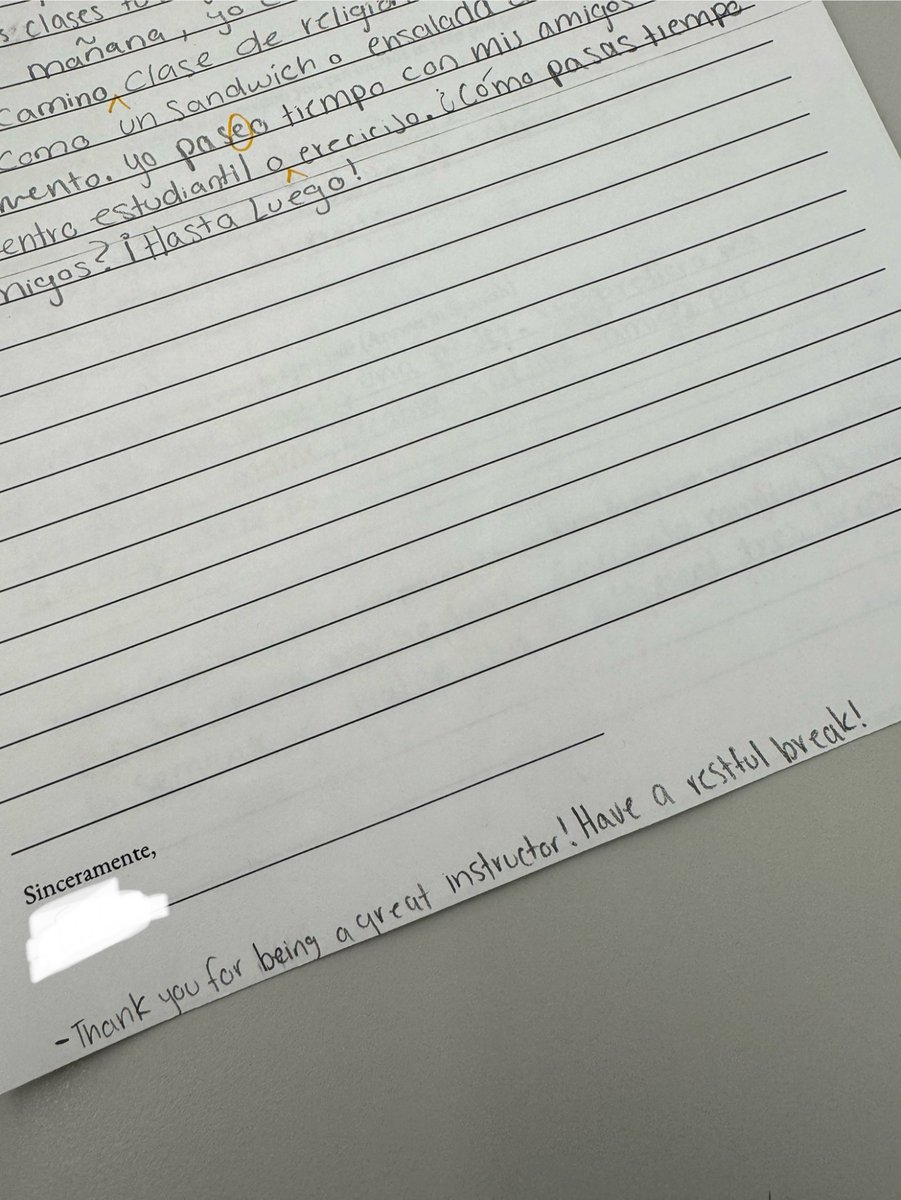 clases
mañana, yo
camino clase de religió
como un sandwich o ensalada
mento. yo paseo tiempo con mis amigos
entro estudiantil o ereciciso. ¿Cómo pasas tiempo
migos? ¡Hasta Luego!
Sinceramente,
-Thank you for being a great instructor! Have a restful break!